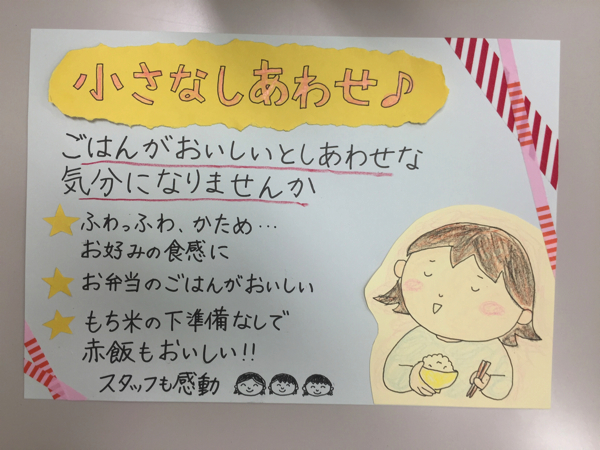 小さなしあわせ♪
ごはんがおいしいとしあわせな
気分になりませんか
ふわっふわ、かため…
お好みの食感に
お弁当のごはんがおいしい
もち米の下準備なしで
赤飯もおいしい!!
スタッフも感動